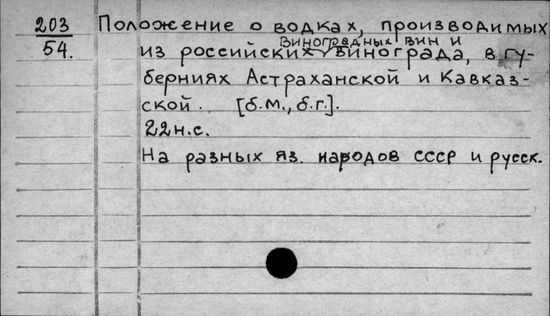 203
54.
Положение о водках, производимых
Виноградных вин и
из российских винограда, в гу-
берниях Астраханской и Кавказ-
ской. [б.м., б.г.].
22 н.с.
На разных яз. народов СССР и русск.